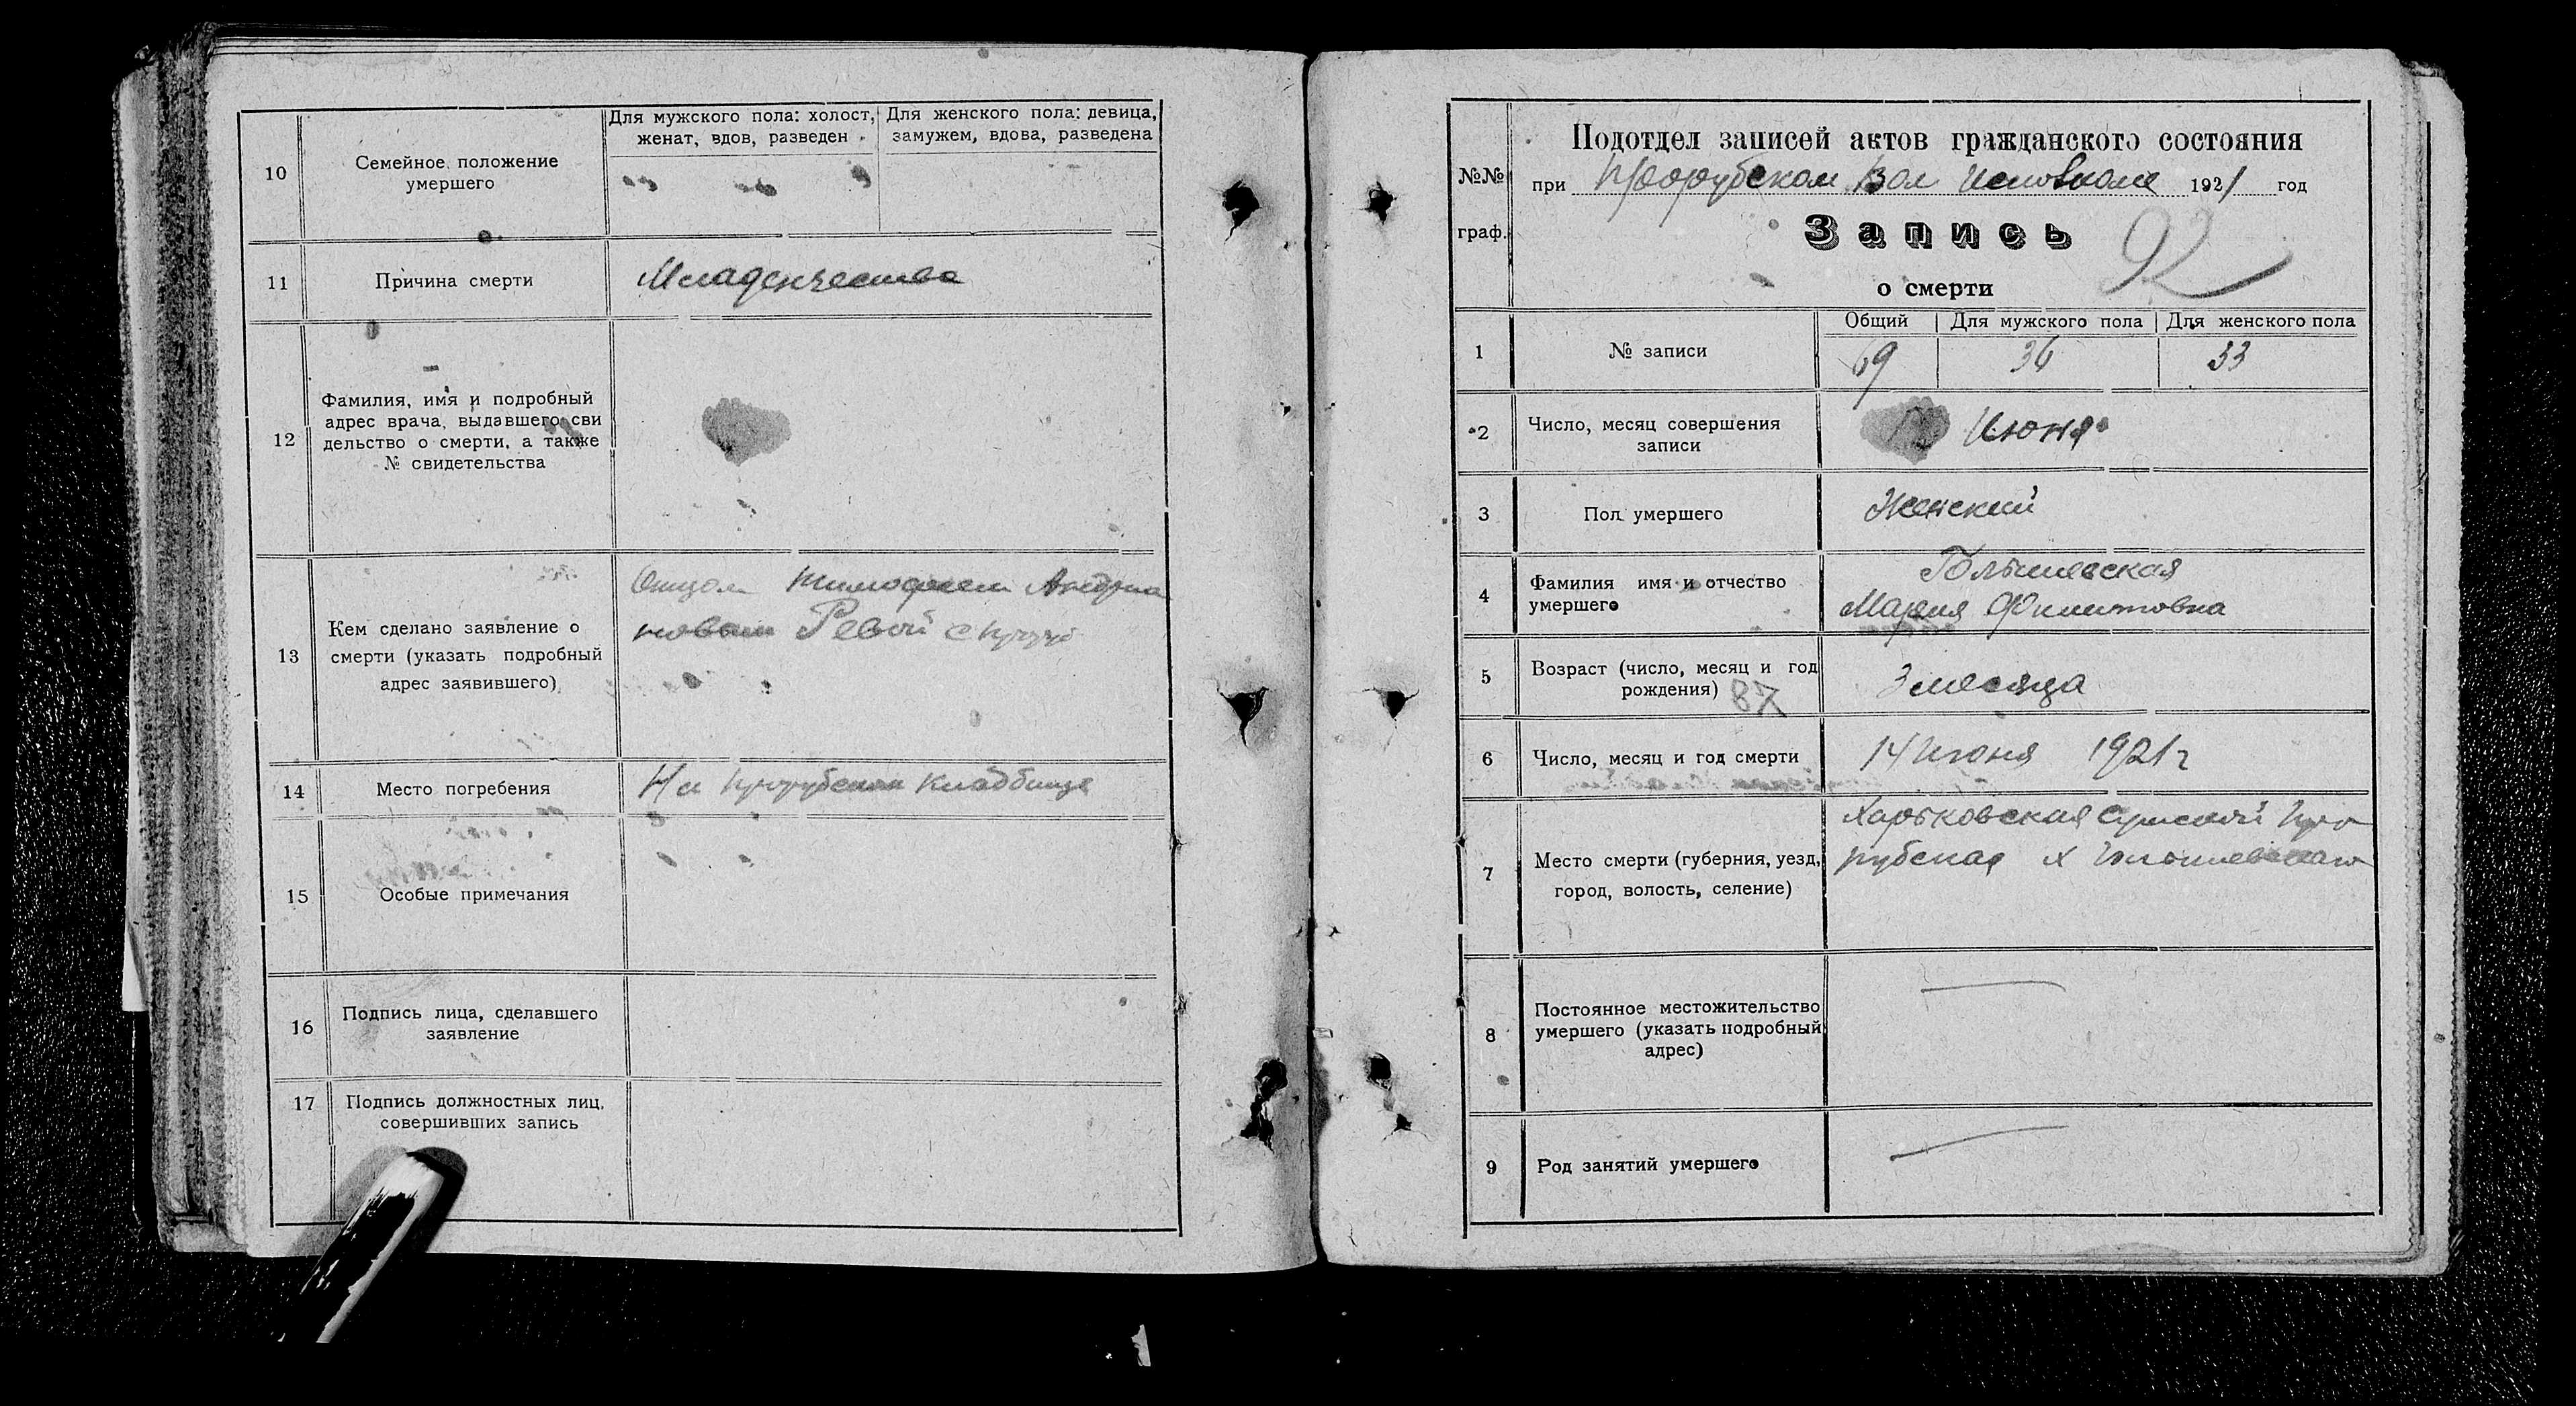 10
Семейное положение
умершего
Для мужского пола: холост,
женат, вдов, разведен
Для женского пола: девица,
замужем, вдова, разведена
11
Причина смерти
Младенчество
12
Фамилия, имя и подробный
адрес врача, выдавшего сви
дельство о смерти, а также
№ свидетельства
13
Кем сделано заявление о
смерти (указать подробный
адрес заявившего)
Отцом Тимофеем Андриа
новым Ревой с
14
Место погребения
На Прорубском кладбище
15
Особые примечания
16
Подпись лица, сделавшего
заявление
17
Подпись должностных лиц,
совершивших запись
№№
граф.
Подотдел записей актов гражданского состояния
при Прорубском Вол Исполкоме 1921 год
Запись
92
о смерти
1
№ записи
Общий
Для мужского пола
Для женского пола
69
36
33
2
Число, месяц совершения
записи
Июня
3
Пол умершего
Женский
4
Фамилия имя и отчество
умершего
Мария Филиповна
5
Возраст (число, месяц и год
рождения)
87
3 месяца
6
Число, месяц и год смерти
14 Июня 1921 г
7
Место смерти (губерния, уезд,
город, волость, селение)
Харьковская Сумской Про
рубская х
8
Постоянное местожительство
умершего (указать подробный
адрес)
9
Род занятий умершего